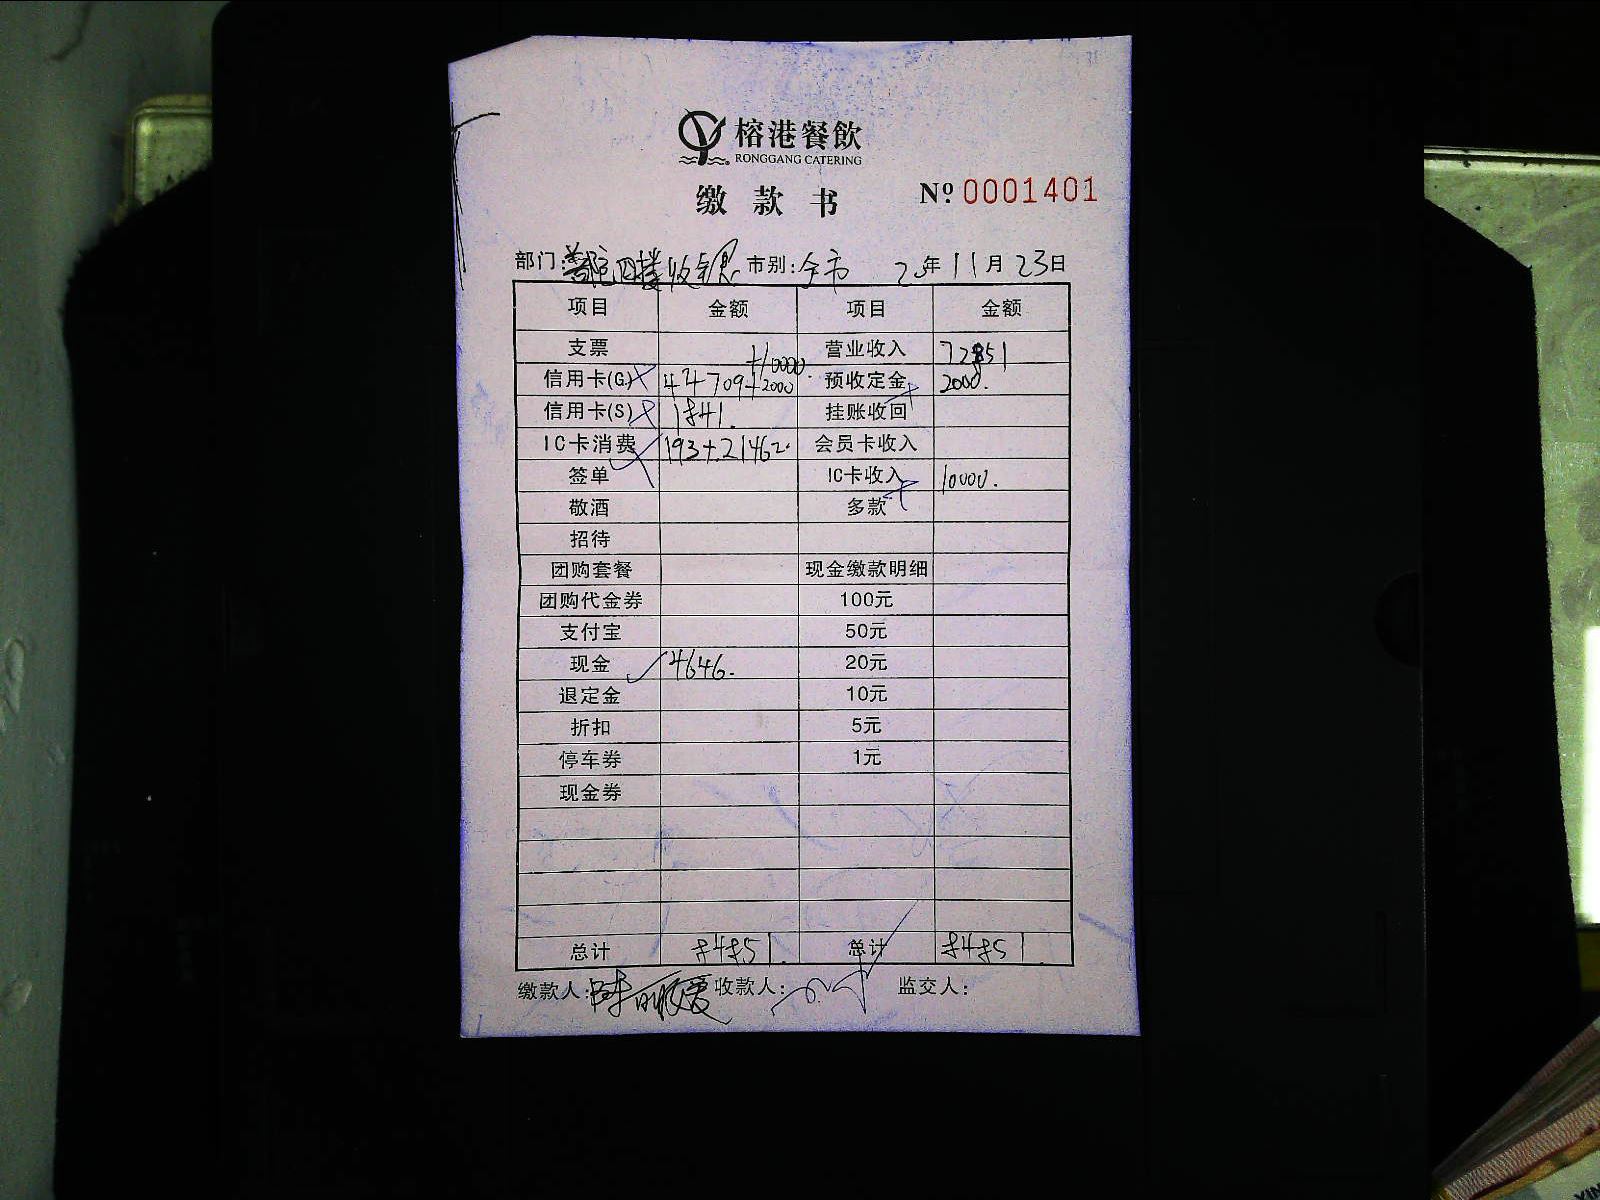 榕港餐飲
RONGGANG CATERING
缴款书 Nº 0001401
部门: 四楼收银 市别: 全市 20年11月23日
项目 金额 项目 金额
支票 营业收入 72851
+10000.
信用卡(G) 44709+2000 预收定金 2000.
信用卡(S) 1841. 挂账收回
IC卡消费 193+21462. 会员卡收入
签单 IC卡收入 10000.
敬酒 多款
招待
团购套餐 现金缴款明细
团购代金券 100元
支付宝 50元
现金 4646. 20元
退定金 10元
折扣 5元
停车券 1元
现金券
总计 84851. 总计 84851.
缴款人: 收款人: 监交人: